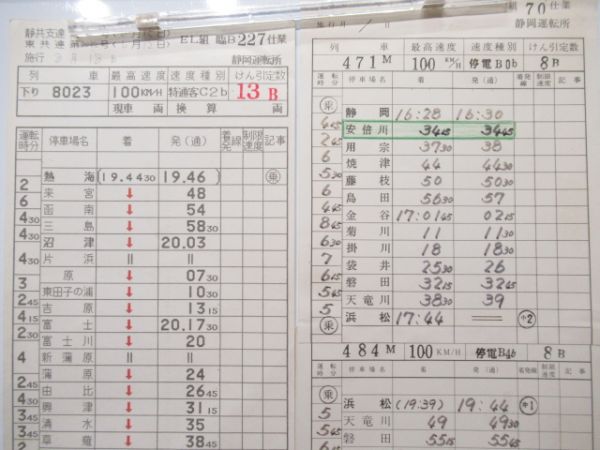 静共支達
EL組 臨B227仕業
静岡運転所
列 車 最高速度 速度種別 けん引定数
下り 8023 100KM/H 特通客C2b 13B
現車 両 換算 両
運転時分 停車場名 着 発(通) 着発線 制限速度 記事
熱海 (19.4430) 19.46 乗
2 来宮 ↓ 48
6 函南 ↓ 54
430 三島 ↓ 5830
430 沼津 ↓ 20.03
片浜 || ||
430 原 ↓ 0730
3 東田子の浦 ↓ 1030
245 吉原 ↓ 1315
415 富士 ↓ 20.1730
230 富士川 ↓ 20
新蒲原 || ||
4 蒲原 ↓ 24
245 由比 ↓ 2645
430 興津 ↓ 3115
清水 ↓ 35
草薙 ↓ 3845
組 70仕業
静岡運転所
列 車 最高速度 速度種別 けん引定数
471M 100KM/H 停電B0b 8B
運転時分 停車場名 着 発(通) 着発線 制限速度 記事
乗
静岡 16:28 16:30
415 安倍川 3415 3445
245 用宗 3730 38
6 焼津 44 4430
藤枝 50 5030
6 島田 5630 57
445 金谷 17:0145 0215
845 菊川 11 1130
630 掛川 18 1830
7 袋井 2530 26
615 磐田 3215 3245
天竜川 3830 39
5 浜松 17:44 ══ 中2
乗
484M 100KM/H 停電B4b 8B
運転時分 停車場名 着 発(通) 着発線 制限速度 記事
乗
浜松 (19:39) 19:44 中1
5 天竜川 49 4930
磐田 5515 5545